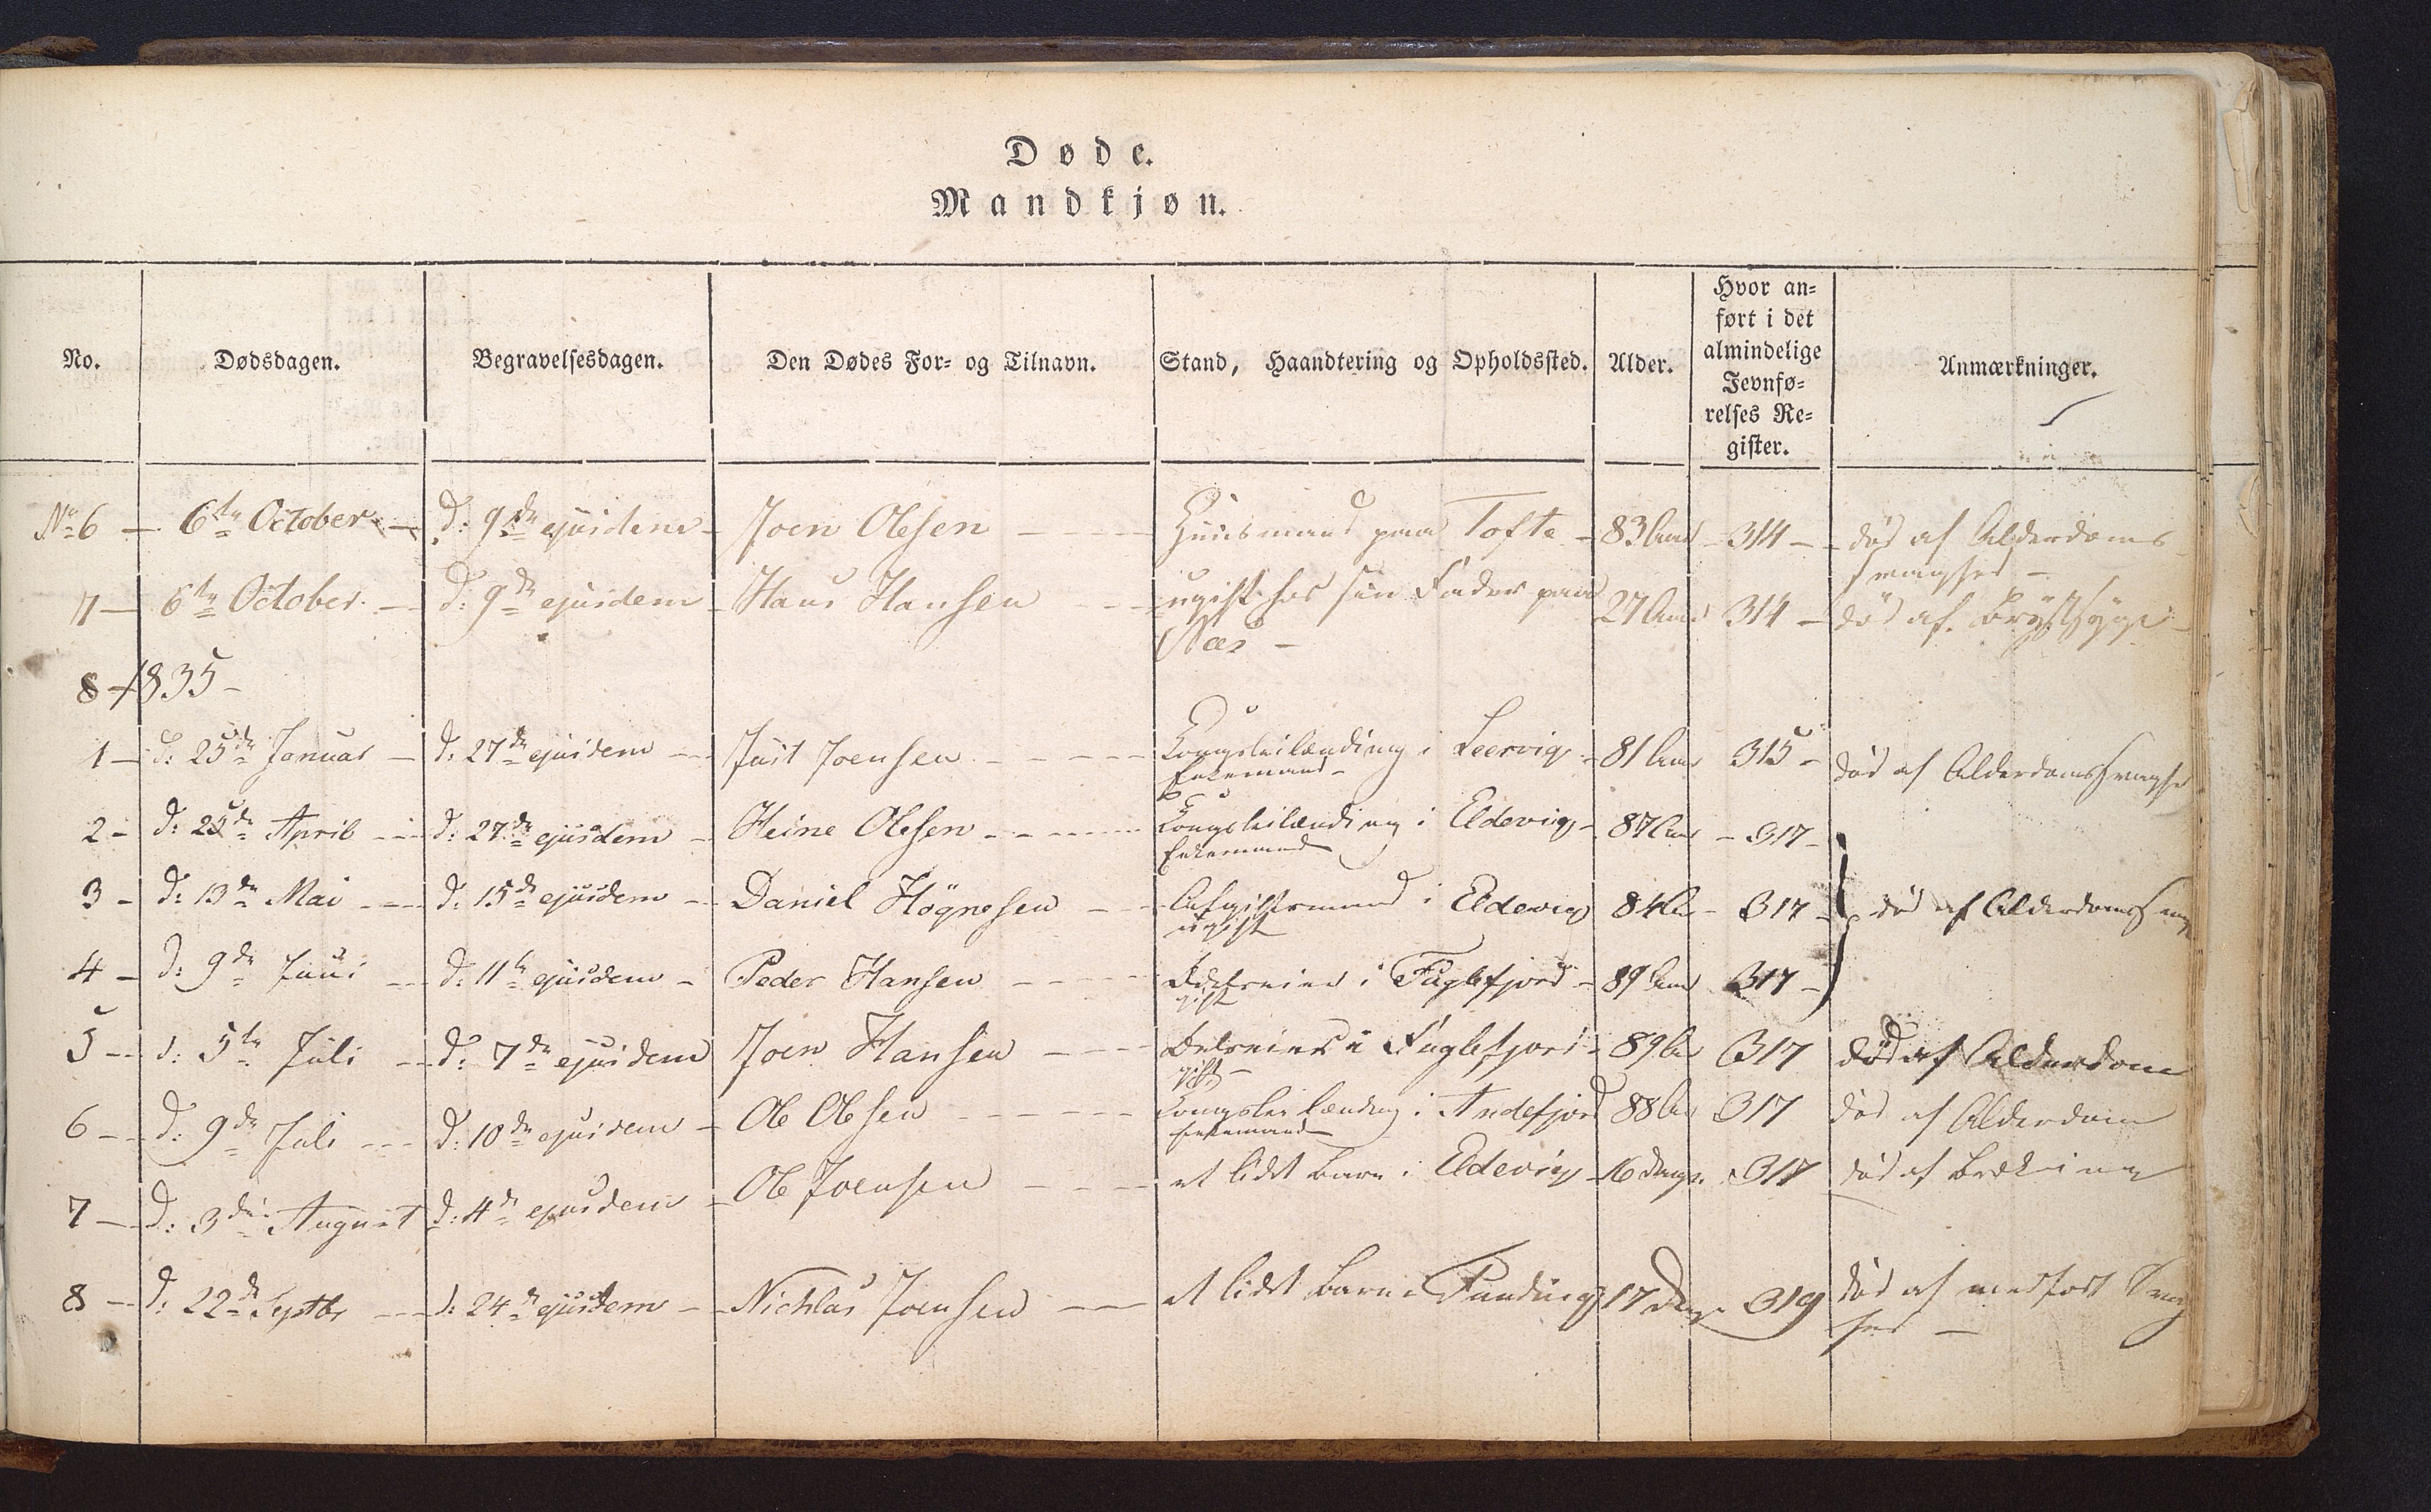 Døde.
Mandkjøn.
No. Dødsdagen. Begravelsesdagen. Den Dødes For- og Tilnavn. Stand, Haandtering og Opholdssted. Alder. Hvor an-
ført i det
almindelige
Jevnfø-
relses Re-
gister. Anmærkninger.
No 6 — 6te October — D: 9de ejusdem — Joen Olesen — Huusmand paa Tofte — 83 Aar — 314 — død af Alderdoms
svaghed —
7 — 6te October — D: 9de ejusdem — Hans Hansen — ugift hos sin Fader paa 27 Aar 314 — død af Brystsyge —
Næs —
8 — 1835 —
1 — d: 25de Januar — d: 27de ejusdem — Just Joensen — Kongsleilænding i Leervig — 81 Aar 315 — død af Alderdomssvaghed
Enkemand —
2 — d: 25de April — d: 27de ejusdem — Heine Olesen — Kongsleilænding i Eldevig — 87 Aar — 317 —
Enkemand
3 — d: 13de Mai — d: 15de ejusdem — Daniel Högnesen — i Eldevig 84 Aar — 317 — død af Alderdomssvag
ugift
4 — d: 9de Juni — d: 11te ejusdem — Peder Hansen — Odelseier i Fuglefjord — 89 Aar 317 —
gift
5 — d: 5te Juli — d: 7de ejusdem Joen Hansen — i Fuglefjord — 89 Aar 317 død af Alderdom
gift —
6 — d: 9de Juli — d: 10de ejusdem — Ole Olesen — Kongsleilænding i Andefjord 88 Aar 317 død af Alderdom
Enkemand
7 — d: 3die August d: 4de ejusdem — Ole Joensen — et lidet Barn i Eldevig — 16 Dage 317 død af
8 — d: 22de Septbr — d: 24de ejusdem — Nichlas Joensen — et lidet Barn i Funding 17 Dage 319 død af medfødt Svag
hed —